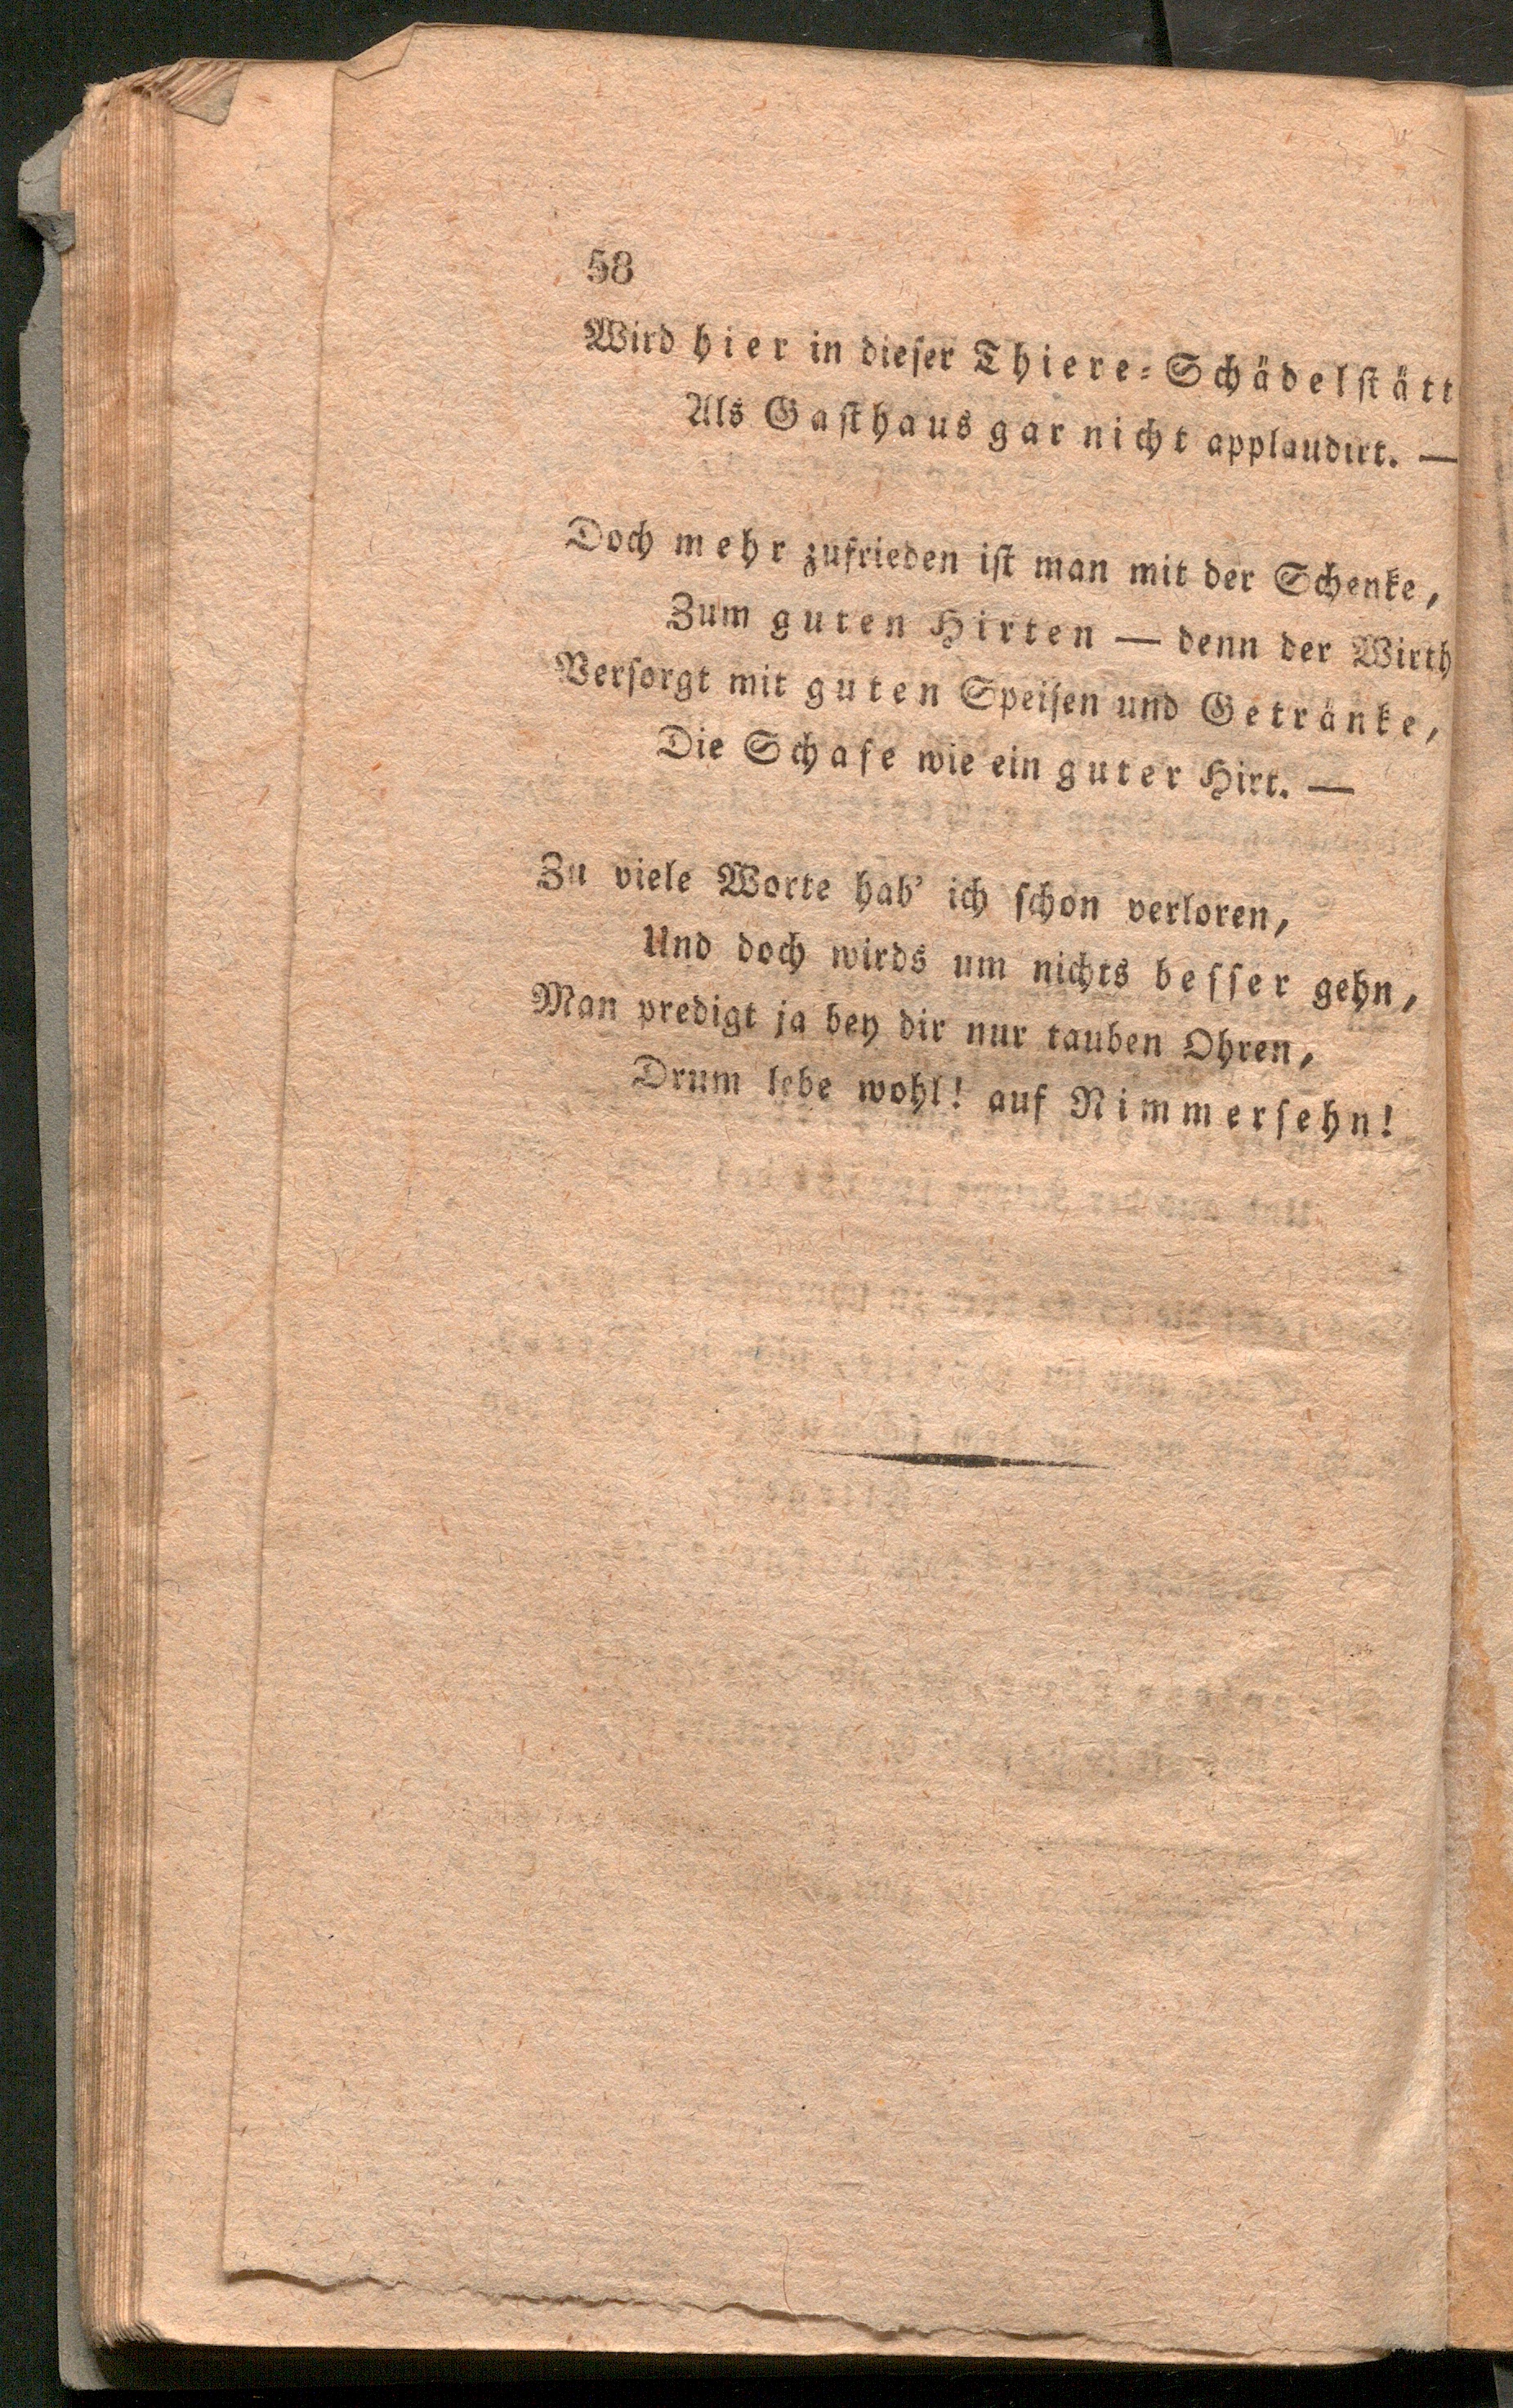 58
Wird hier in dieser Thiere-Schädelstätt
Als Gasthaus gar nicht applaudirt. —
Doch mehr zufrieden ist man mit der Schenke,
Zum guten Hirten — denn der Wirth
Versorgt mit guten Speisen und Getränke,
Die Schafe wie ein guter Hirt. —
Zu viele Worte hab' ich schon verloren,
Und doch wirds um nichts besser gehn,
Man predigt ja bey dir nur tauben Ohren,
Drum lebe wohl! auf Nimmersehn!